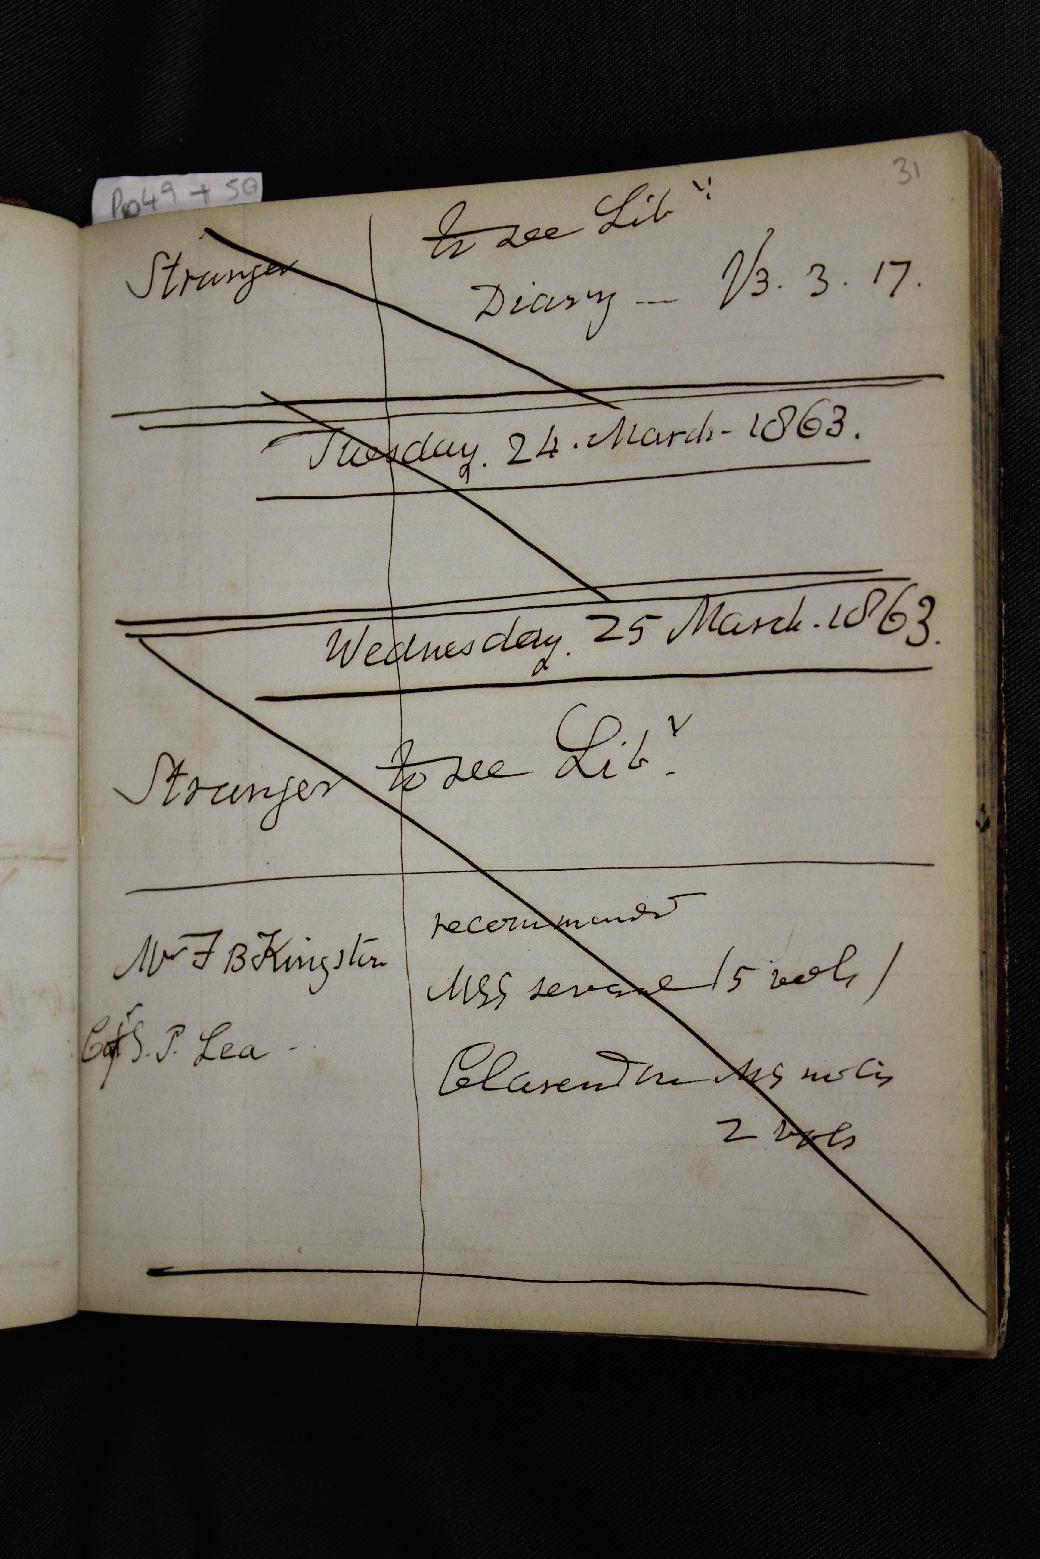 Pp 49 + 50
31
Stranger to see Lib y.
Diary — V3. 3. 17.
Tuesday. 24. March - 1863.
Wednesday. 25 March. 1863.
Stranger to see Lib y.
Mr F B Kingston recommendt
MSS several (5 vols)
S. P. Lea Clarendon MS notis
2 vols